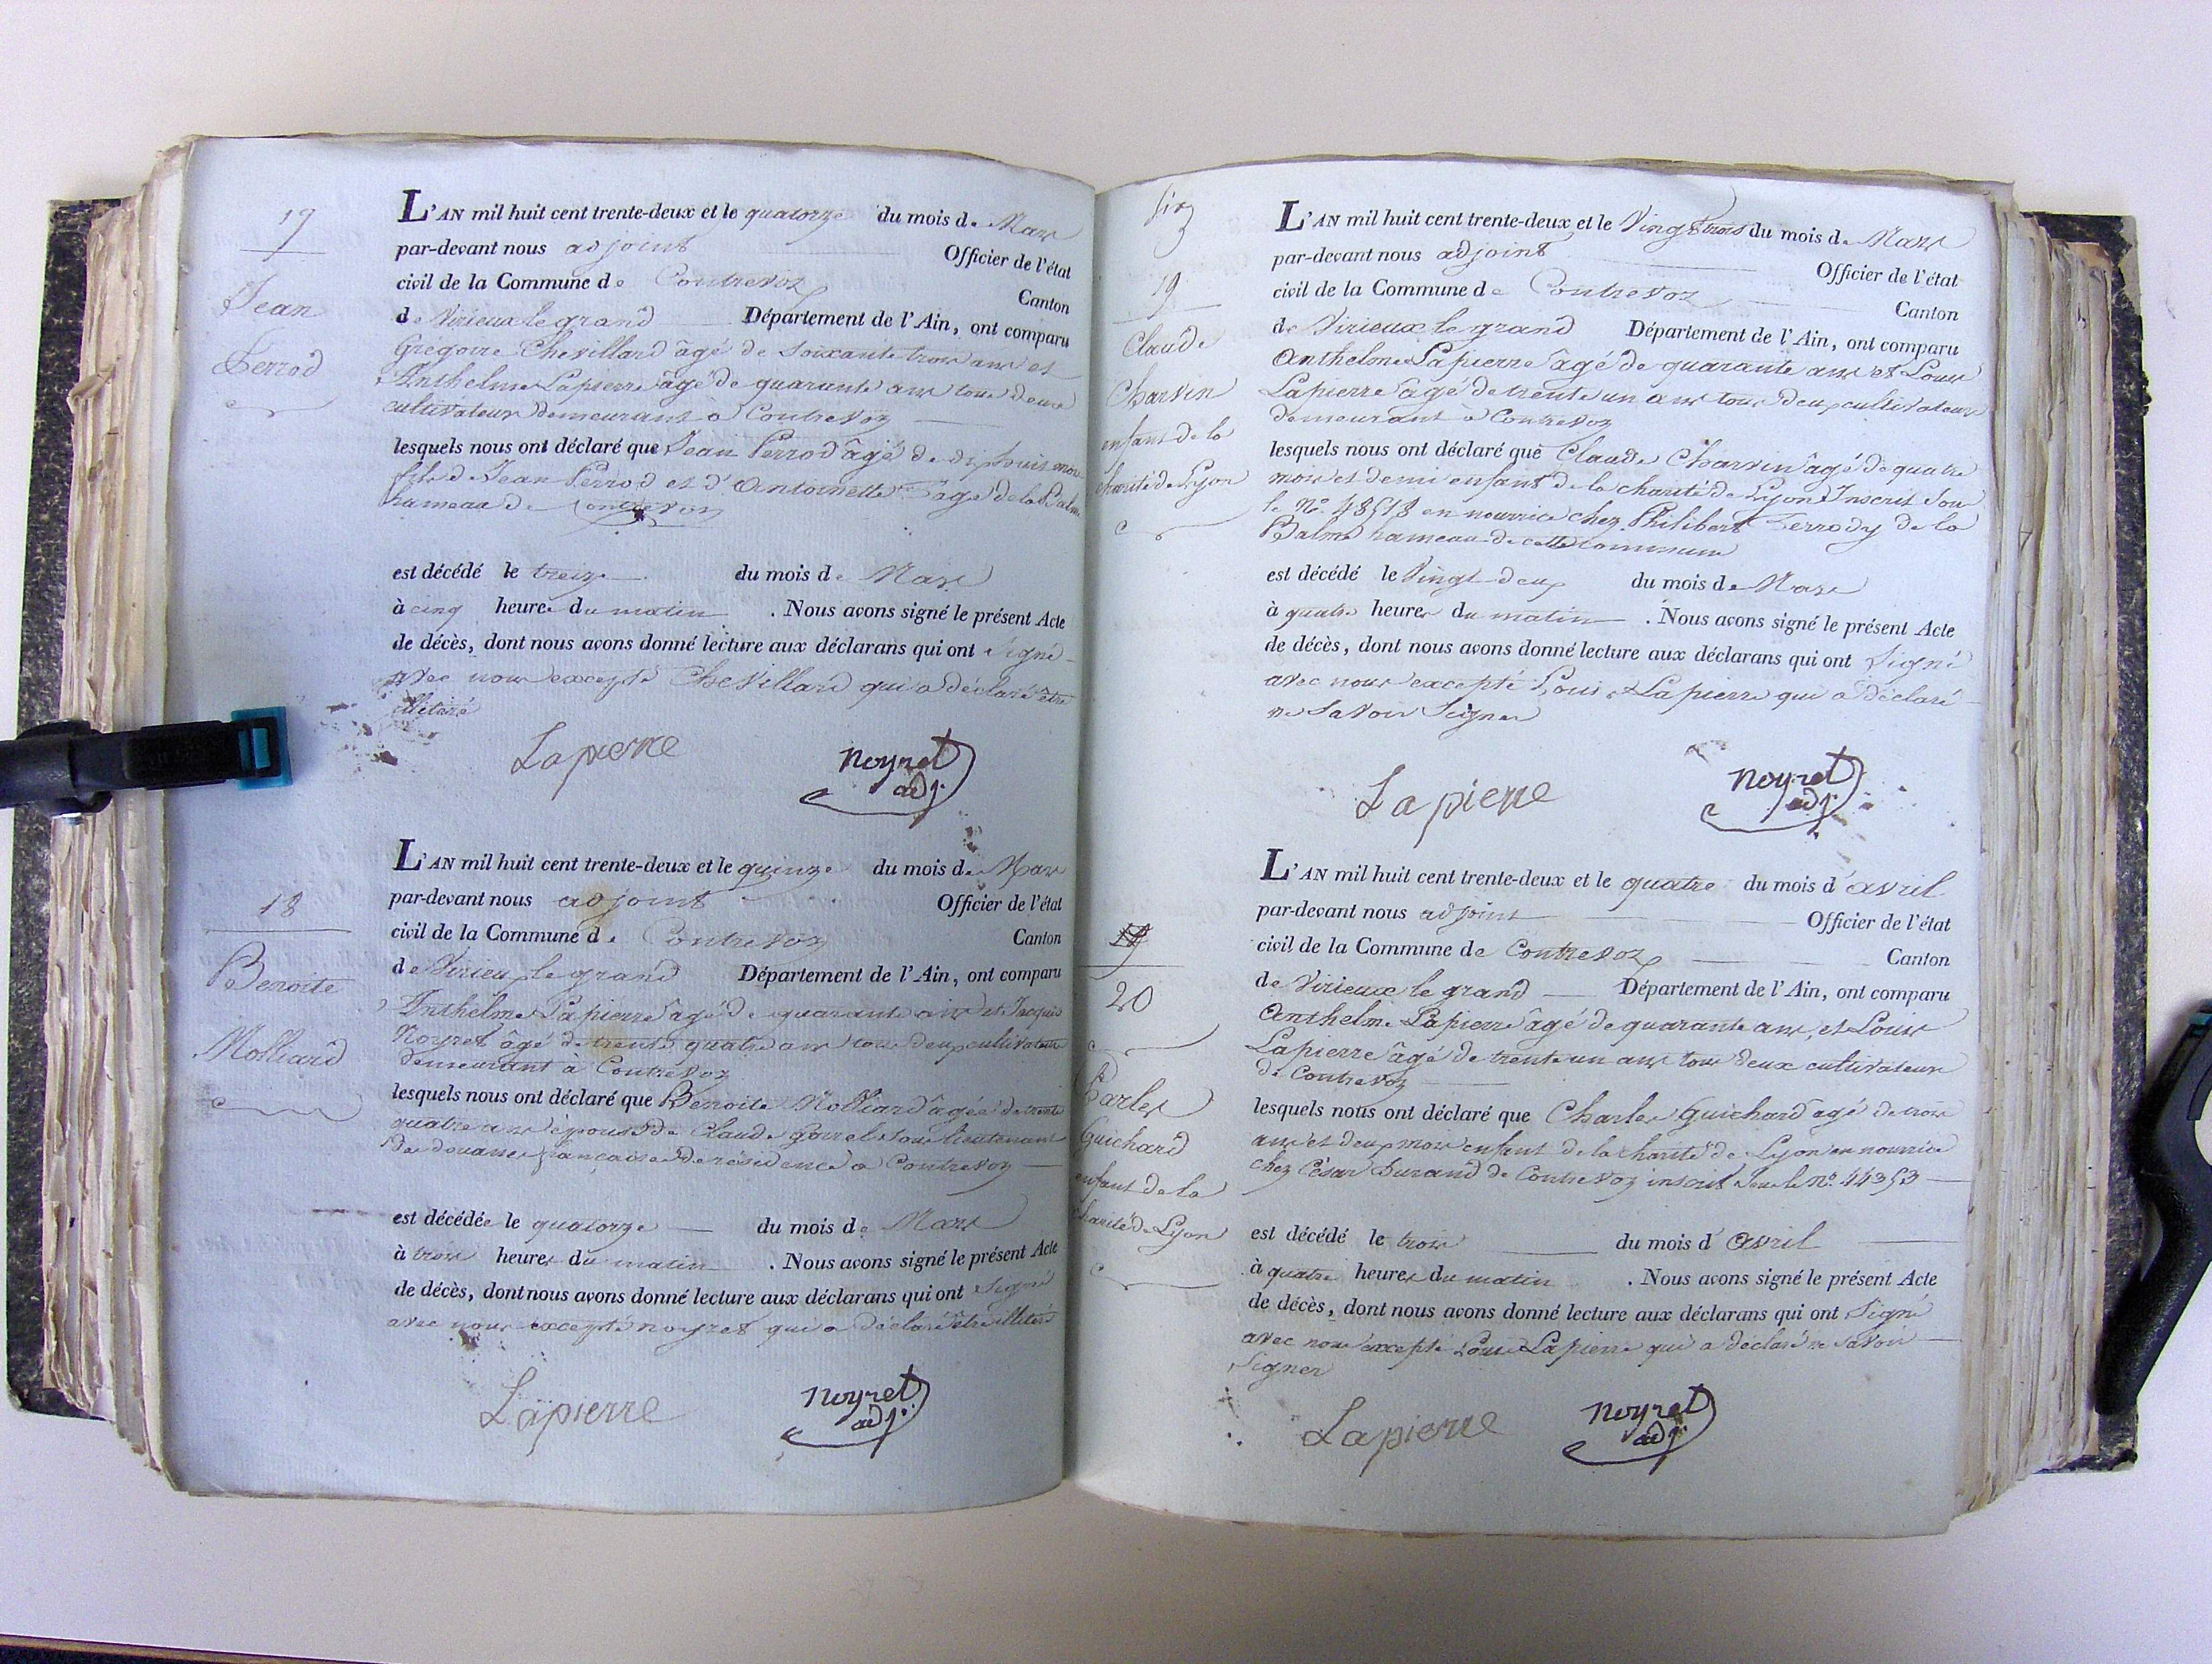 17
Jean
Perrod
L'AN mil huit cent trente-deux et le quatorze du mois de Mars
par-devant nous adjoint Officier de l'état
civil de la Commune de Contrevoz Canton
de Virieux le grand Département de l'Ain, ont comparu
Grégoire Chevillard âgé de soixante trois ans et
Anthelme Lapierre âgé de quarante ans tous deux
cultivateurs demeurant à Contrevoz
lesquels nous ont déclaré que Jean Perrod âgé de dix huit mois
fils de Jean Perrod et d'Antoinette de la Balme
hameau de Contrevoz
est décédé le treize du mois de Mars
à cinq heures du matin . Nous avons signé le présent Acte
de décès, dont nous avons donné lecture aux déclarans qui ont signé
avec nous excepté Chevillard qui a déclaré être
illiteré
Lapierre Noyret
adj.
18
Benoite
Molliard
L'AN mil huit cent trente-deux et le quinze du mois de Mars
par-devant nous adjoint Officier de l'état
civil de la Commune de Contrevoz Canton
de Virieux le grand Département de l'Ain, ont comparu
Anthelme Lapierre âgé de quarante ans et Jacques
Noyret âgé de trente quatre ans tous deux cultivateurs
demeurant à Contrevoz
lesquels nous ont déclaré que Benoite Molliard âgée de trente
quatre ans épouse de Claude sous lieutenant
des douanes françaises de résidence a Contrevoz
est décédée le quatorze du mois de Mars
à trois heures du matin . Nous avons signé le présent Acte
de décès, dont nous avons donné lecture aux déclarans qui ont signé
avec nous excepté noyret qui a déclaré être illiteré
Lapierre Noyret
adj.
19
Claude
Charvin
enfant de la
charité de Lyon
L'AN mil huit cent trente-deux et le Vingt trois du mois de Mars
par-devant nous adjoint Officier de l'état
civil de la Commune de Contrevoz Canton
de Virieux le grand Département de l'Ain, ont comparu
Anthelme Lapierre âgé de quarante ans et Louis
Lapierre âgé de trente un ans tous deux cultivateurs
demeurant à Contrevoz
lesquels nous ont déclaré que Claude Charvin âgé de quatre
mois et demi enfant de la charité de Lyon Inscrit sous
le No. 48518 en nourrice chez Philibert de la
Balme hameau de cette commune
est décédé le Vingt deux du mois de Mars
à quatre heures du matin . Nous avons signé le présent Acte
de décès, dont nous avons donné lecture aux déclarans qui ont signé
avec nous excepté Louis Lapierre qui a déclaré
ne savoir signer
Lapierre Noyret
adj.
19
20
Charles
Guichard
enfant de la
charité de Lyon
L'AN mil huit cent trente-deux et le quatre du mois d'avril
par-devant nous adjoint Officier de l'état
civil de la Commune de Contrevoz Canton
de Virieux le grand Département de l'Ain, ont comparu
Anthelme Lapierre âgé de quarante ans, et Louis
Lapierre âgé de trente un ans tous deux cultivateurs
de Contrevoz
lesquels nous ont déclaré que Charles Guichard âgé de trois
ans et deux mois enfant de la charité de Lyon en nourrice
chez César Durand de Contrevoz inscrit sous le no. 44353
est décédé le trois du mois d'avril
à quatre heures du matin . Nous avons signé le présent Acte
de décès, dont nous avons donné lecture aux déclarans qui ont signé
avec nous excepté Louis Lapierre qui a déclaré ne savoir
signer
Lapierre Noyret
adj.